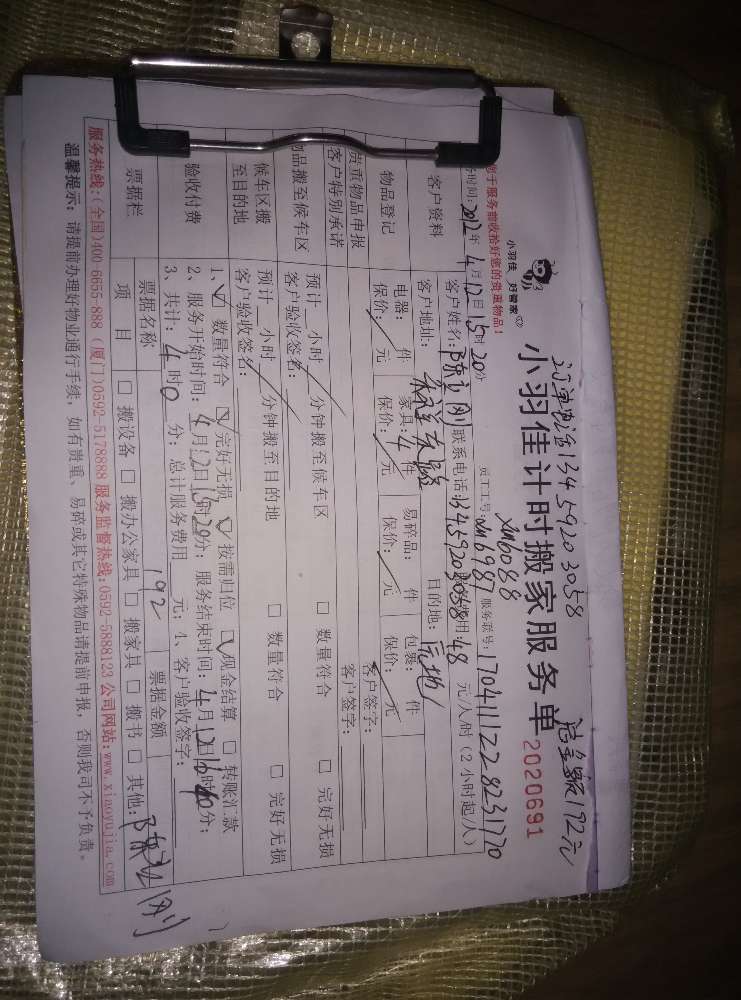 订单电话13459203058 总金额192元
小羽佳 好管家
小羽佳计时搬家服务单 2020691
于服务前收拾好您的贵重物品! 员工工号: xm6987 xm6088 服务联号: 1704111228231770
时间: 2012年4月12日15时20分
客户资料 客户姓名: 陈立刚 联系电话: 13459203058 费用: 48 元/人/时 (2小时起/人)
客户地址: 目的地:
物品登记 电器: 件 家具: 4 件 易碎品: 件 包裹: 件
保价: 元 保价: 元 保价: 元 保价: 元
贵重物品申报 客户签字:
客户特别承诺 客户签字:
物品搬至候车区 预计 小时 分钟搬至候车区 □ 数量符合 □ 完好无损
客户验收签名:
候车区搬至目的地 预计 小时 分钟搬至目的地 □ 数量符合 □ 完好无损
客户验收签名:
验收付费 1、☑ 数量符合 ☑ 完好无损 ☑ 按需归位 ☑ 现金结算 □ 转账汇款
2、服务开始时间: 4月12日15时20分; 服务结束时间: 4月12日16时40分;
3、共计: 4时0分; 总计服务费用 192 元; 4、客户验收签字: 陈立刚
票据栏 票据名称 票据金额
项目 □ 搬设备 □ 搬办公家具 □ 搬家具 □ 搬书 □ 其他:
服务热线: (全国)400-6655-888 (厦门)0592-5178888 服务监督热线: 0592-5888123 公司网站: www.xiaoyujia.com
温馨提示: 请提前办理好物业通行手续, 如有贵重、易碎或其它特殊物品请提前申报, 否则我司不予负责。